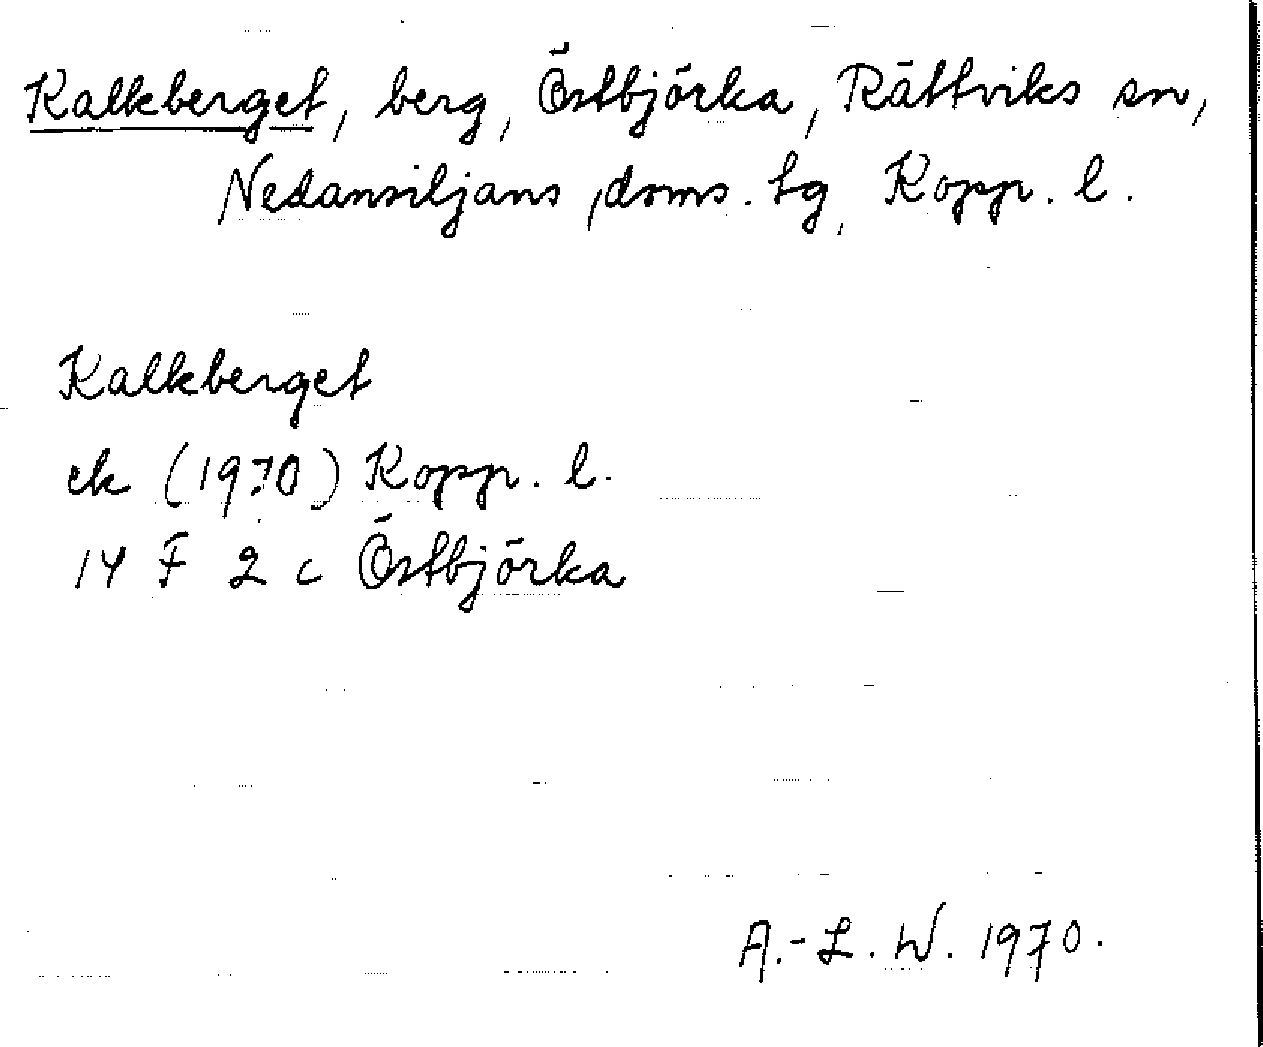 Kalkberget, berg, Östbjörka, Rättviks sn,
Nedansiljans doms. tg, Kopp. l.
Kalkberget
ek (1970) Kopp. l.
14 F 2 c Östbjörka
A.-L. W. 1970.